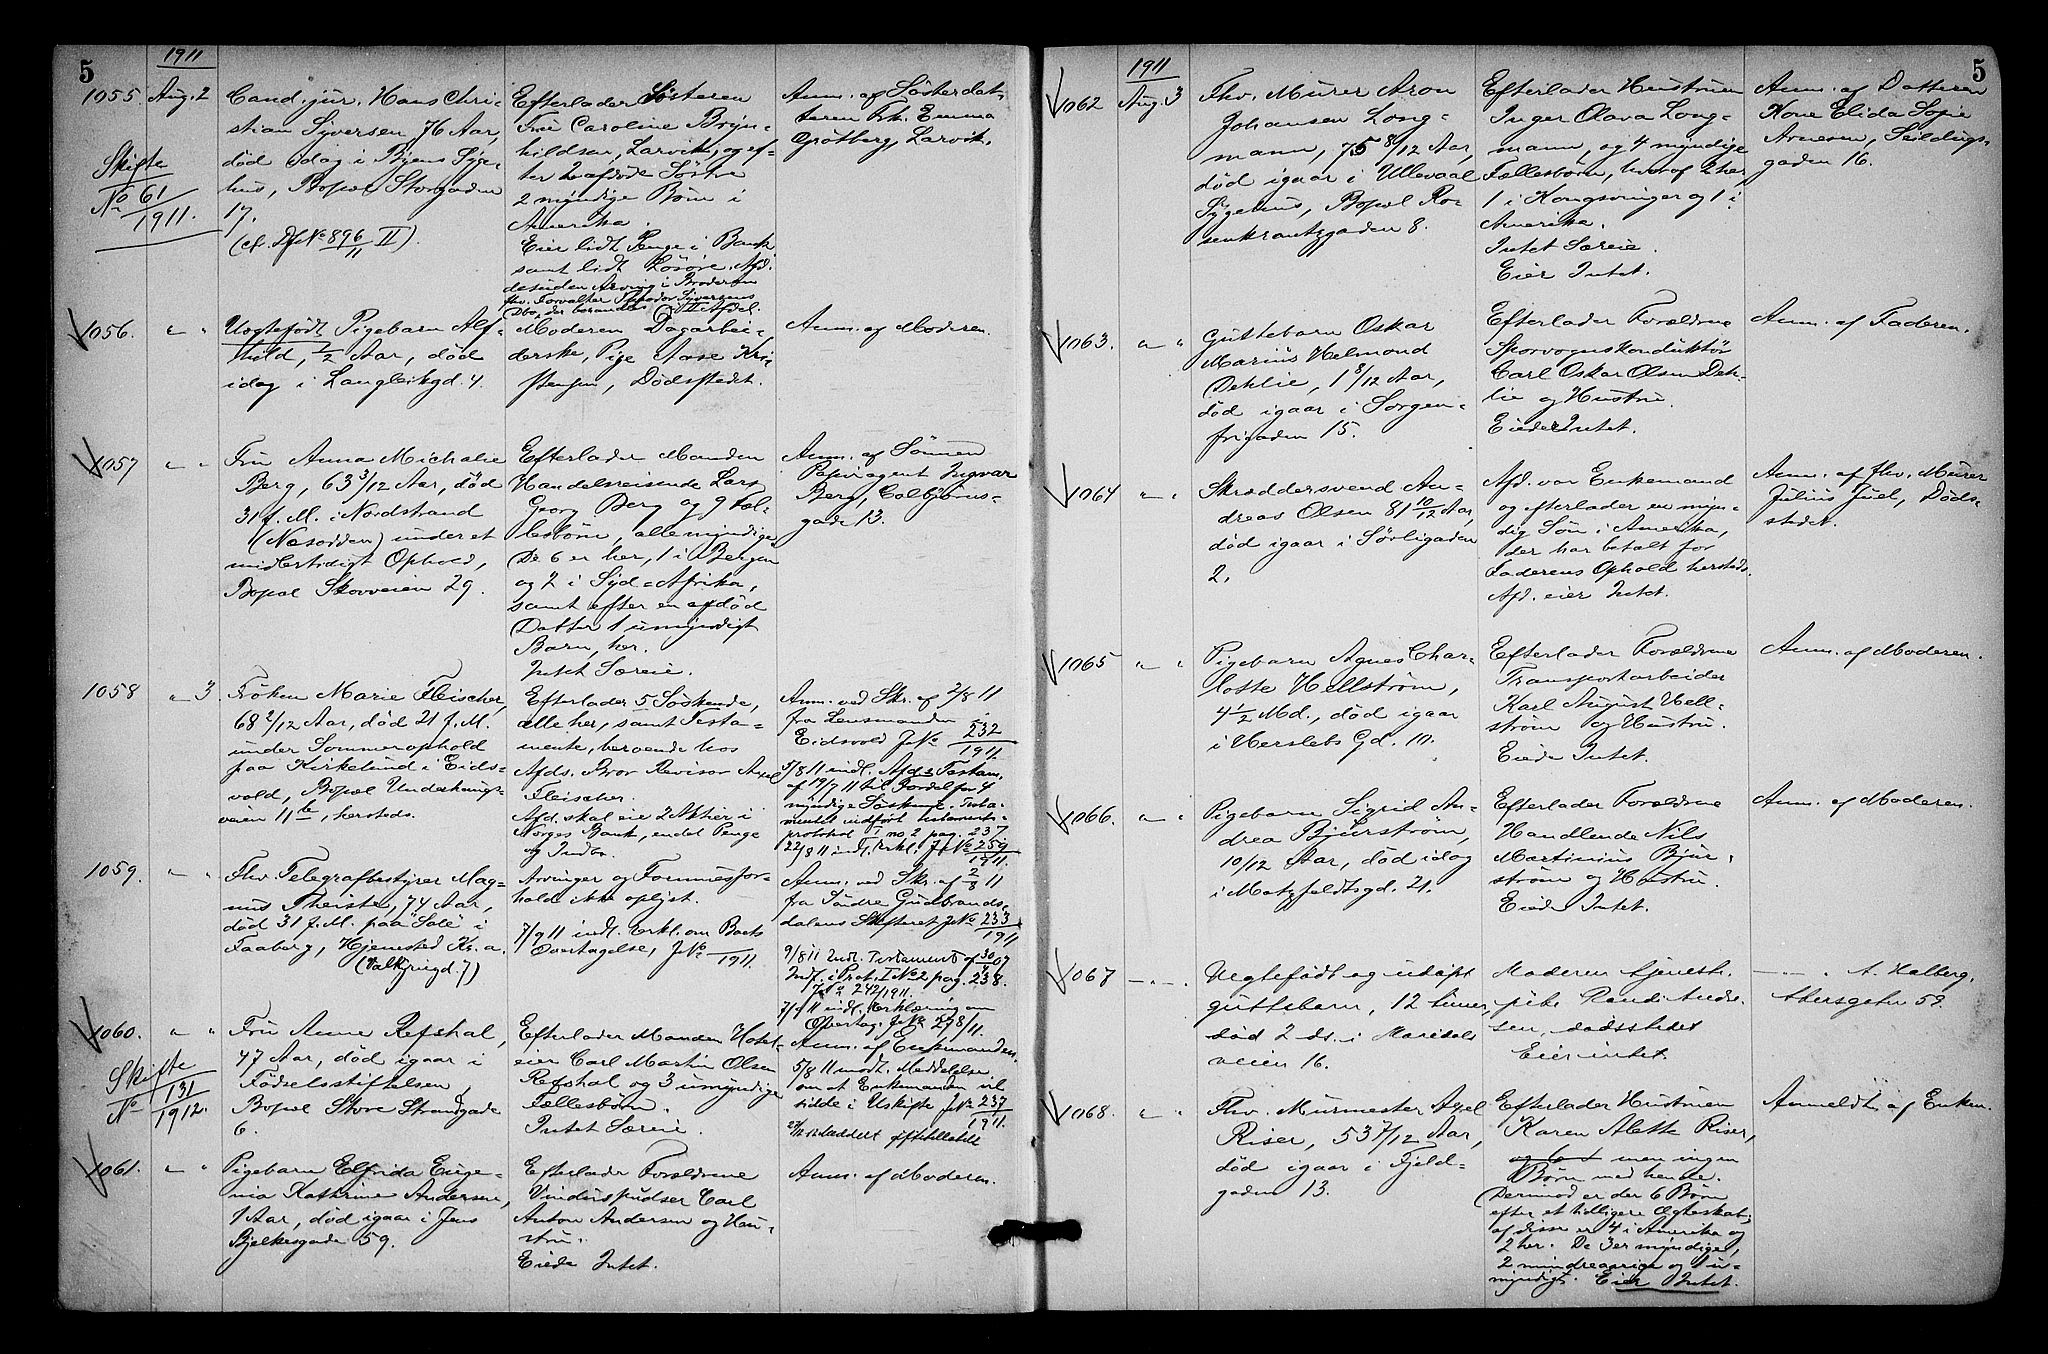 5
1911
1055 Aug. 2
Cand. jur. Hans Chri-
stian Syversen 76 Aar,
død idag i Byens Syge-
hus, Bopæl Storgaden
17.
(cf. Df No 896/11 II).
Skifte
No 61/1911.
Efterlader Søsteren
Fru Caroline Bryn-
hildsen, Larvik, og ef-
ter 2 afdøde Søstre
2 myndige Børn i
Amerika.
Eier lidt Penge i Bank
samt lidt Løsøre. Afd.
desuden Arving i Broderen
fhv. Forvalter Theodor Syversens
Dbo, der behandles i II Afdel.
Anm. af Søsterdat-
teren Frk. Emma
Gjøtberg, Larvik.
1056. " "
Uegtefødt Pigebarn Alf-
hild, 1/2 Aar, død
idag i Langleikgd. 4.
Moderen Dagarbei-
derske, Pige Aase Kri-
stensen, Dødsstedet.
Anm. af Moderen.
1057 " "
Fru Anna Michalie
Berg, 63 3/12 Aar, død
31 f. M. i Nordstrand
(Næsodden) under et
midlertidigt Ophold,
Bopæl Skovveien 29.
Efterlader Manden
Handelsreisende Lars
Georg Berg og 9 Fæl-
lesbørn, alle myndige.
De 6 er her, 1 i Bergen
og 2 i Syd-Afrika,
samt efter en afdød
Datter 1 umyndigt
Barn, her.
Intet Særeie.
Anm. af Sønnen
Papiragent Ingvar
Berg, Colbjørns-
gade 13.
1058 " 3.
Frøken Marie Fleischer,
68 2/12 Aar, død 21 f. M.
under Sommerophold
paa Kirkelund i Eids-
vold, Bopæl Underhaugs-
veien 11 b, hersteds.
Efterlader 5 Søskende,
alle her, samt Testa-
mente, beroende hos
Afds. Bror Revisor Axel
Fleischer.
Afd. skal eie 2 Aktier i
Norges Bank, endel Penge
og Indbo.
Anm. ved Skr. af 2/8 11
fra Lensmanden i
Eidsvold J No 232/1911
3/8 11 indl. Afds Testam.
af 19/7 11 til Fordel for 4
myndige Søskende. Testa-
mentet indført testaments-
protokol I no 2 pag. 237
22/8 11 indl. Erkl. J No 259/1911.
1059. " "
Fhv. Telegrafbestyrer Mag-
nus Theiste, 74 Aar,
død 31 f. M. paa "Sole" i
Faaberg, Hjemsted Kr.a.
(Valkyriegd. 7)
Arvinger og Formuesfor-
hold ikke oplyst.
7/9 11 indl. Erkl. om Boets
Overtagelse, J No /1911.
Anm. ved Skr. af 2/8 11
fra Søndre Gudbrands-
dalens Skifteret J No 233/1911
9/8 11 Indl. Testament af 30/6 07
Indf. i Prot. I No 2 pag. 238.
J No 242/1911.
7/9 11 indl. Erklæring om
Overtag. J No 278/11.
1060. " "
Fru Anna Refshal,
47 Aar, død igaar i
Fødselsstiftelsen,
Bopæl Store Strandgade
6.
Skifte
No 131/1912.
Efterlader Manden Hotel-
eier Carl Martin Olsen
Refshal og 3 umyndige
Fællesbørn.
Intet Særeie.
Anm. af Enkemanden.
5/8 11 modt. Meddelelse
om at Enkemanden vil
sidde i Uskifte J No 237/1911.
1061. " "
Pigebarn Elfrida Euge-
nia Kathrine Andersen,
1 Aar, død igaar i Jens
Bjelkesgade 59.
Efterlader Forældrene
Vinduspudser Carl
Anton Andersen og Hu-
stru.
Eiede Intet.
Anm. af Moderen.
5
1911
1062 Aug. 3
Fhv. Murer Aron
Johansen Long-
mann, 75 8/12 Aar,
død igaar i Ullevaal
Sygehus, Bopæl Ro-
senkrantzgaden 8.
Efterlader Hustruen
Inger Olava Long-
mann, og 4 myndige
Fællesbørn, hvoraf 2 her
1 i Kongsvinger og 1 i
Amerika.
Intet Særeie.
Eier Intet.
Anm. af Datteren
Kone Elida Sofie
Arnesen, Seildugs-
gaden 16.
1063. " "
Guttebarn Oskar
Marius Helmond
Dehlie, 1 8/12 Aar,
død igaar i Sorgen-
frigaden 15.
Efterlader Forældrene
Sporvognskonduktør
Carl Oskar Olsen Deh-
lie og Hustru.
Eiede Intet.
Anm. af Faderen.
1064 " "
Skræddersvend An-
dreas Olsen 81 10/12 Aar,
død igaar i Søvligaden
2.
Afd. var Enkemand
og efterlader en myn-
dig Søn i Amerika,
der har betalt for
Faderens Ophold hersteds.
Afd. eier Intet.
Anm. af fhv. Murer
Julius Juel, Døds-
stedet.
1065 " "
Pigebarn Agnes Char-
lotte Hellstrøm,
4 1/2 Md., død igaar
i Herslebs Gd. 10.
Efterlader Forældrene
Transportarbeider
Karl August Hell-
strøm og Hustru.
Eiede Intet.
Anm. af Moderen.
1066. " "
Pigebarn Sigrid An-
drea Bjurstrøm,
10/12 Aar, død idag
i Motzfeldtsgd. 21.
Efterlader Forældrene
Handlende Nils
Martinius Bjur-
strøm og Hustru.
Eiede Intet.
Anm. af Moderen.
1067 - " -
Uegtefødt og udøpt
guttebarn, 12 timer,
død 2 ds. i Maridals
veien 16.
Moderen tjeneste-
pike Randi Andr-
sen, dødsstedet
Eier intet.
— " — A. Halberg,
Akersgatn 59.
1068. " "
Fhv. Murmester Axel
Riser, 53 7/12 Aar,
død igaar i Fjeld-
gaden 13.
Efterlader Hustruen
Karen Alette Riser,
men ingen
Børn med hende.
(Dermod er der 6 Børn
efter et tidligere Ægteskab;
af disse er 4 i Amerika og
2 her. De 3 er myndige,
2 mindreaarige og 1 u-
myndigt. Eier Intet.
Anmeldt af Enken.